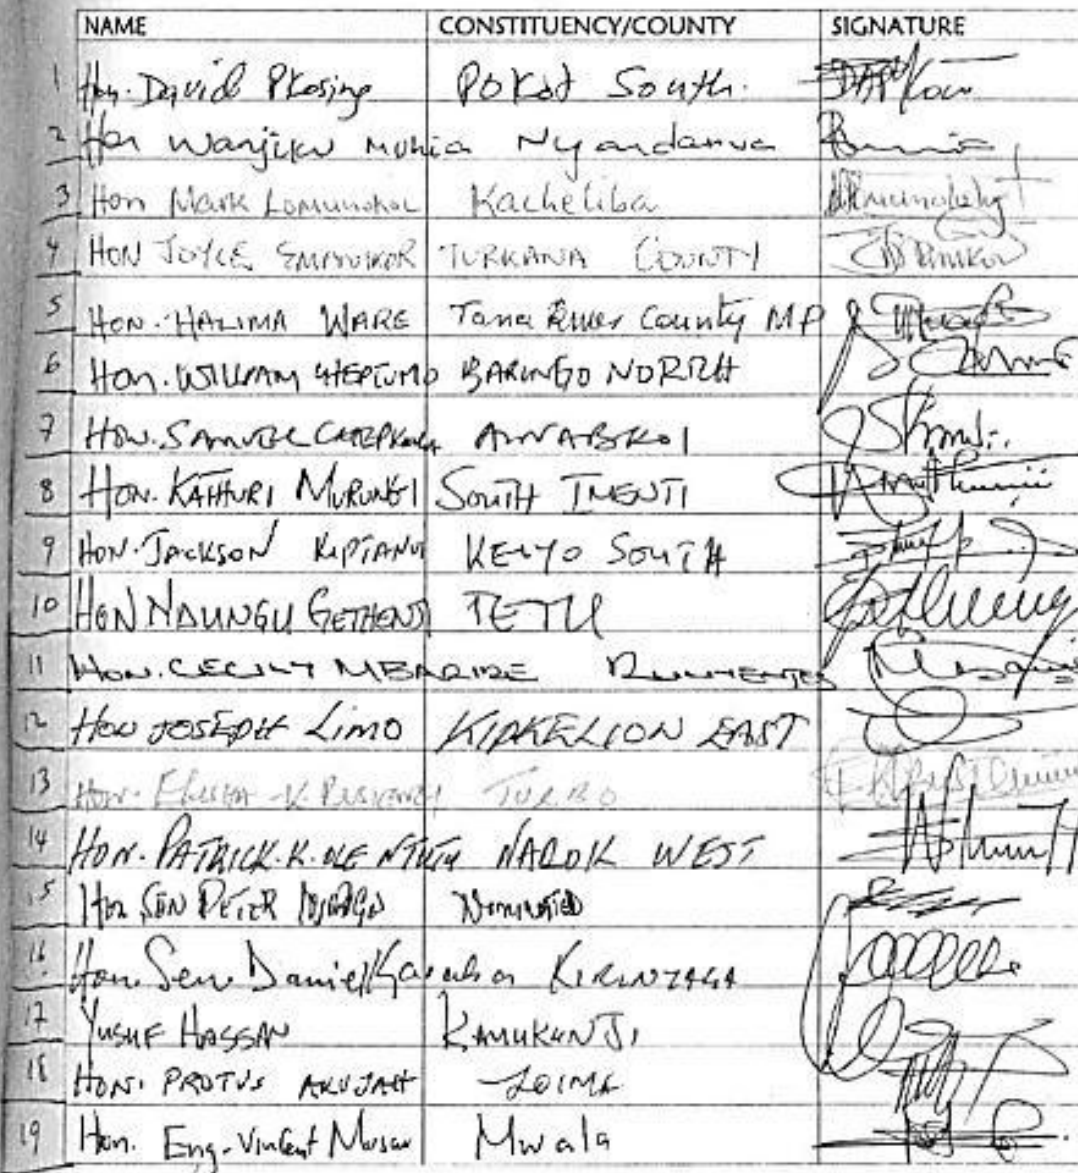 NAME CONSTITUENCY/COUNTY SIGNATURE
1 Hon. David Pkosing Pokot South.
2 Hon Wanjiku Muhia Nyandarua
3 Hon Mark Lomunokol Kacheliba
4 HON JOYCE EMANIKOR TURKANA COUNTY
5 HON. HALIMA WARE Tana River County MP
6 Hon. WILLIAM CHEPTUMO BARINGO NORTH
7 HON. SAMUEL CHEPKONGA AINABKOI
8 HON. KATHURI MURUNGI SOUTH IMENTI
9 HON. JACKSON KIPTANUI KEIYO SOUTH
10 HON NDUNGU GETHENJI TETU
11 HON. CECILY MBARIRE
12 HON JOSEPH LIMO KIPKELION EAST
13 HON. TURBO
14 HON. PATRICK. K. OLE NTUTU NAROK WEST
15 Hon SEN PETER NOMINATED
16 Hon. Sen. Daniel Karaba KIRINYAGA
17 YUSUF HASSAN KAMUKUNJI
18 HON. PROTUS AKUJAH LOIMA
19 Hon. Eng. Vincent Musau Mwala